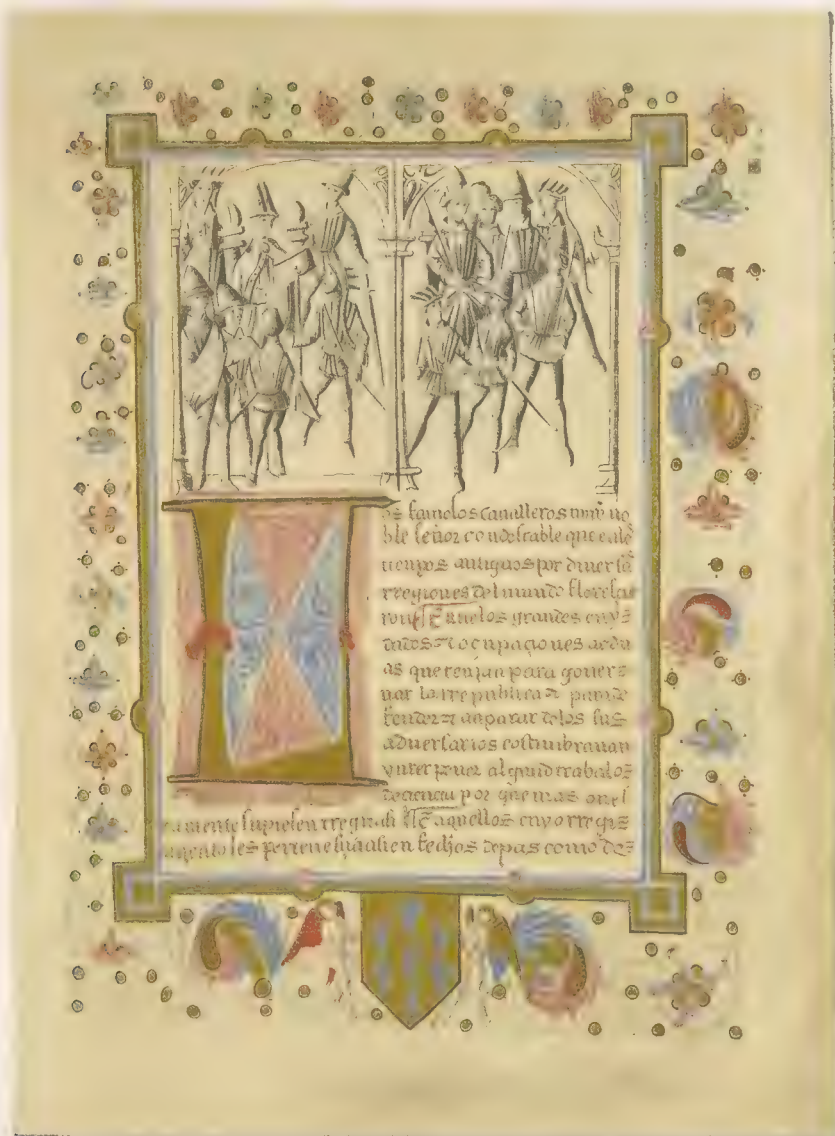 os famosos caualleros muy no
ble señor condestable que enlos
tienpos antiguos por diuersas
rregiones del mundo florescie
ron entre los grandes cuy
dados ⁊ ocupaçiones ardu
as que tenjan para gouer
nar la rrepublica ⁊ para de
fender ⁊ anparar delos sus
aduersarios costunbrauan
ynterponer algund trabalos
de çiençia por que mas onel
tamente supiesen rregir asi
aquellos cuyo rregi
mjento les pertenesçia asi en fechos de pas como de